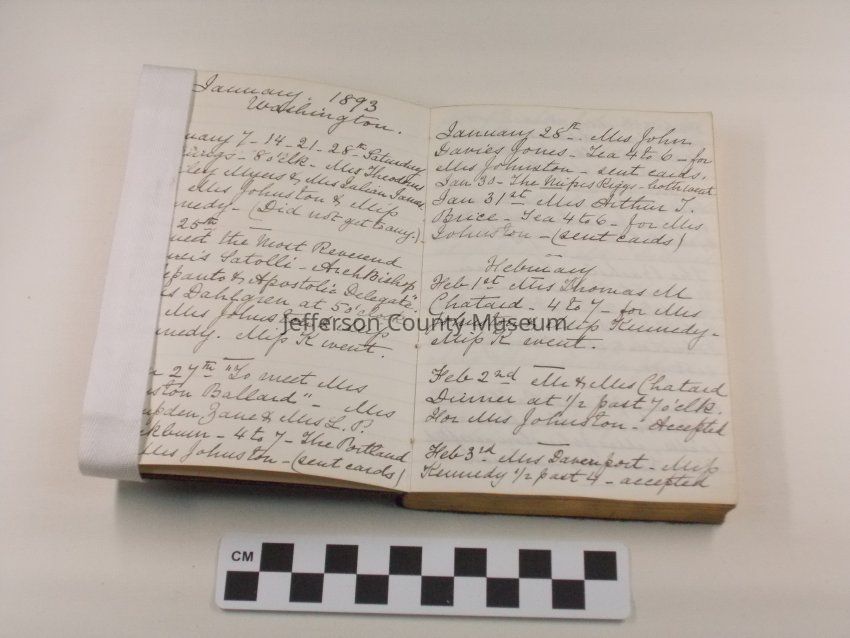 January. 1893
Washington.
uary 7 - 14 - 21 - 28th Saturday
- 8 o'clk - Mrs Theodorus
ley Myers & Mrs Julian James
Mrs Johnston & Miss
nedy - (Did not get to any.)
25th
meet the Most Reverend
Satolli - ArchBishop
epanto & Apostolic Delegate".
s Dahlgren at 5 o'
Mrs Johns
nnedy. Miss K went.
27th "To meet Mrs
ston Ballard" - Mrs
pden Zane & Mrs L. P.
ckburn - 4 to 7 - The Portland
Mrs Johnston - (sent cards)
January 28th. Mrs John
Davies Jones - Tea 4 to 6 - for
Mrs Johnston - sent cards.
Jan 30 - The Misses Riggs - both went
Jan 31st Mrs Arthur T.
Brice - Tea 4 to 6 - for Mrs
Johnston - (sent cards)
February
Feb 1st Mrs Thomas M
Chatard - 4 to 7 - for Mrs
Miss Kennedy -
Miss K went.
Feb 2nd Mr & Mrs Chatard
Dinner at 1/2 past 7 o'clk.
For Mrs Johnston - Accepted
Feb 3rd Mrs Davenport - Miss
Kennedy 1/2 past 4 - accepted
Jefferson County Museum
CM